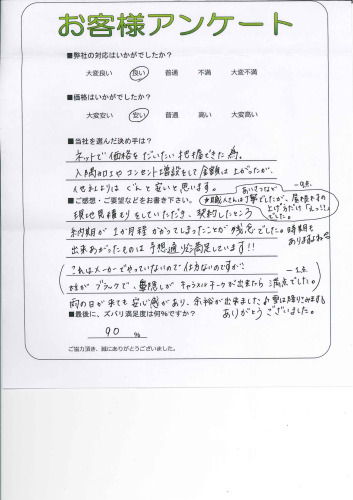 お客様アンケート
■弊社の対応はいかがでしたか?
大変良い 良い 普通 不満 大変不満
■価格はいかがでしたか?
大変安い 安い 普通 高い 大変高い
■当社を選んだ決め手は?
ネットで価格をだいたい把握できた為。
入隅加工やコンセント増設をして金額は上がったが、
他社よりは ぐんと安いと思います。
■ご感想・ご要望などをお書き下さい。
あいさつなど
職人さんは丁寧でしたが、屋根をすの
上げるだけ「えっ!」
でした。
現地見積もりをしていただき、契約したところ
納期が1か月程かかってしまったことが残念でした。時期も
ありますよね
出来あがったものは予想通り満足しています!!
これはメーカーでやっていないので仕方ないのですが?
柱がブラックで、目隠しがキャラメルチークが出来たら満点でした。
雨の日が来ても安心感があり、余裕が出来ました
ありがとうございました。
■最後に、ズバリ満足度は何%ですか?
90 %
ご協力頂き、誠にありがとうございました。